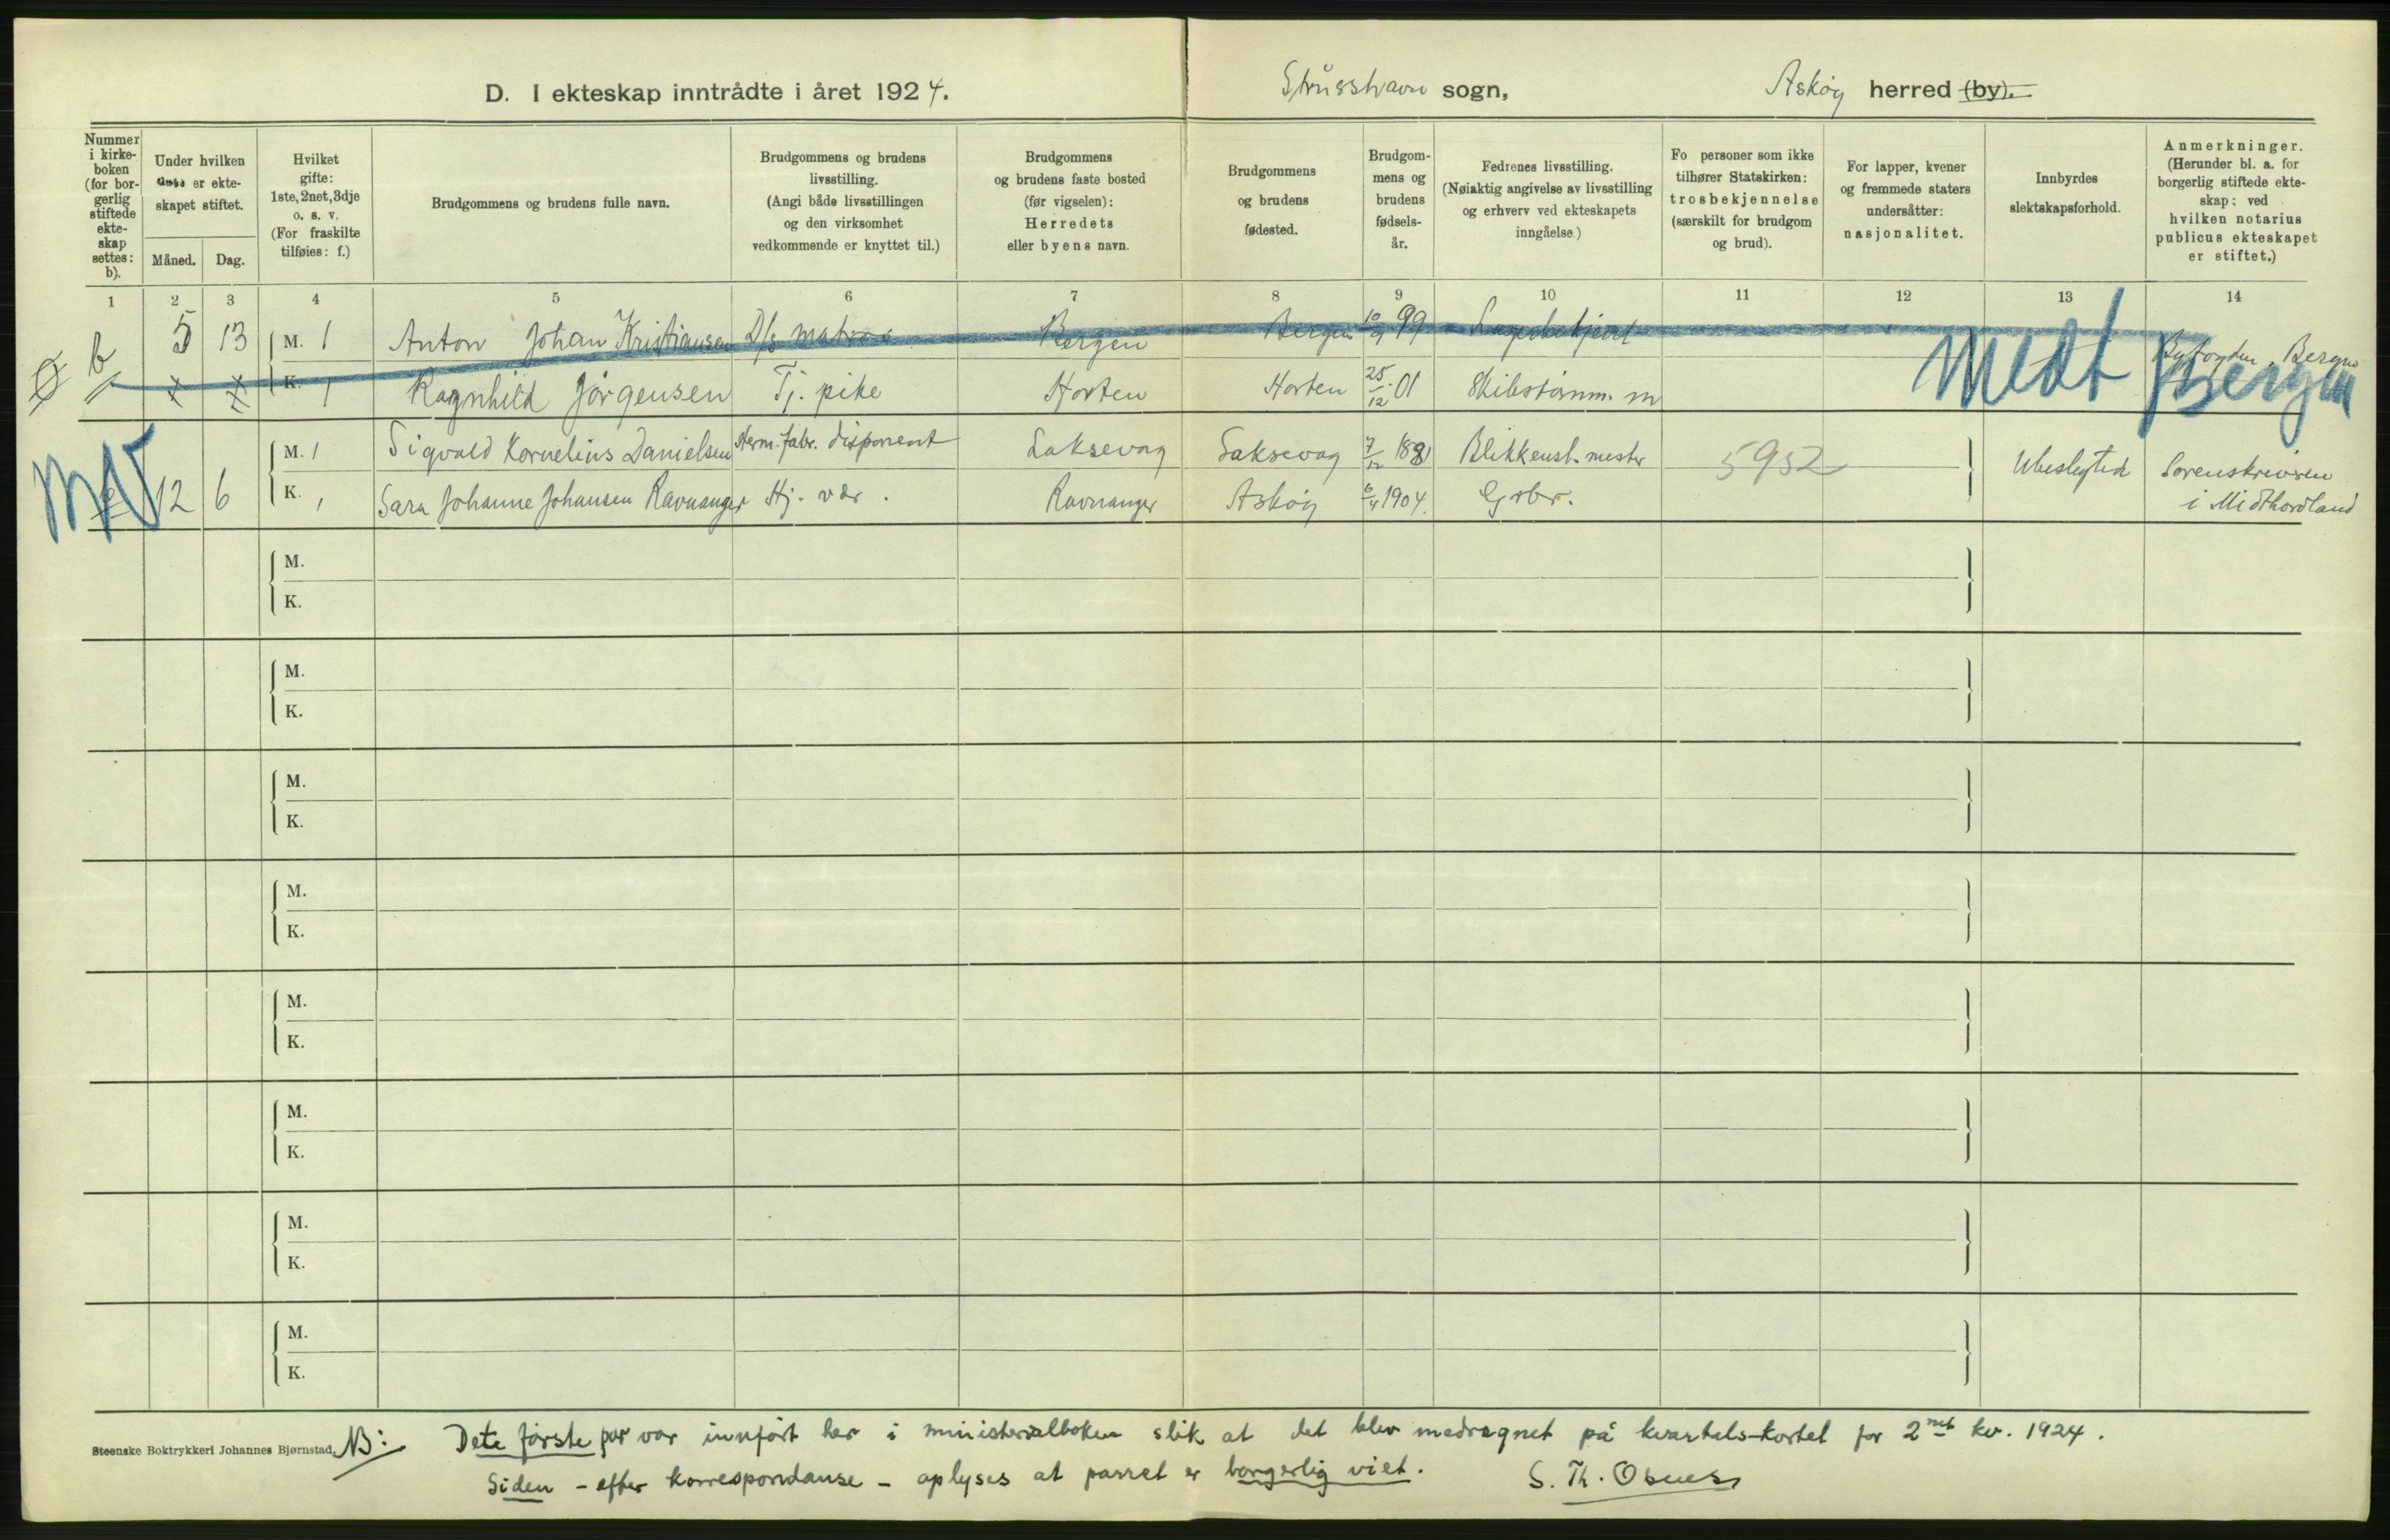 D. I ekteskap inntrådte i året 1924. Strusshavn sogn, Askøy herred (by).
Nummer i kirkeboken (for borgerlig stiftede ekteskap settes: b).
Under hvilken dato er ekteskapet stiftet.
Måned. Dag.
Hvilket gifte: 1ste, 2net, 3dje o. s. v. (For fraskilte tilføies: f.)
Brudgommens og brudens fulle navn.
Brudgommens og brudens livsstilling. (Angi både livsstillingen og den virksomhet vedkommende er knyttet til.)
Brudgommens og brudens faste bosted (før vigselen): Herredets eller byens navn.
Brudgommens og brudens fødested.
Brudgommens og brudens fødselsår.
Fedrenes livsstilling. (Nøiaktig angivelse av livsstilling og erhverv ved ekteskapets inngåelse.)
Fo personer som ikke tilhører Statskirken: trosbekjennelse (særskilt for brudgom og brud).
For lapper, kvener og fremmede staters undersåtter: nasjonalitet.
Innbyrdes slektskapsforhold.
Anmerkninger. (Herunder bl. a. for borgerlig stiftede ekteskap: ved hvilken notarius publicus ekteskapet er stiftet.)
1 2 3 4 5 6 7 8 9 10 11 12 13 14
b 5 13 M. 1 Anton Johan Kristiansen D/s matros Bergen Bergen 10/9 99 Byfogden, Bergen
K. 1 Ragnhild Jörgensen Tj. pike Horten Horten 25/12 01 Skibstömm. m
Medt Bergen
M. 1 Sigvald Kornelius Danielsen Herm. fabr. disponent Laksevag Laksevag 7/12 188 Blikkensl. mester 5952 Ubeslegted Sorenskriveren
12 6 K. 1 Sara Johanne Johansen Ravnanger Hj. vær. Ravnanger Askøy 6/4 1904. Grbr. i Midthordland
M.
K.
M.
K.
M.
K.
M.
K.
M.
K.
M.
K.
M.
K.
M.
K.
Steenske Boktrykkeri Johannes Bjørnstad.
NB: Dete förste par var innfört her i ministerialboken slik at det blev medregnet på kvartals-kortet for 2net kv. 1924.
Siden – efter korrespondanse – oplyses at parret er borgerlig viet. S. Th. Osnes